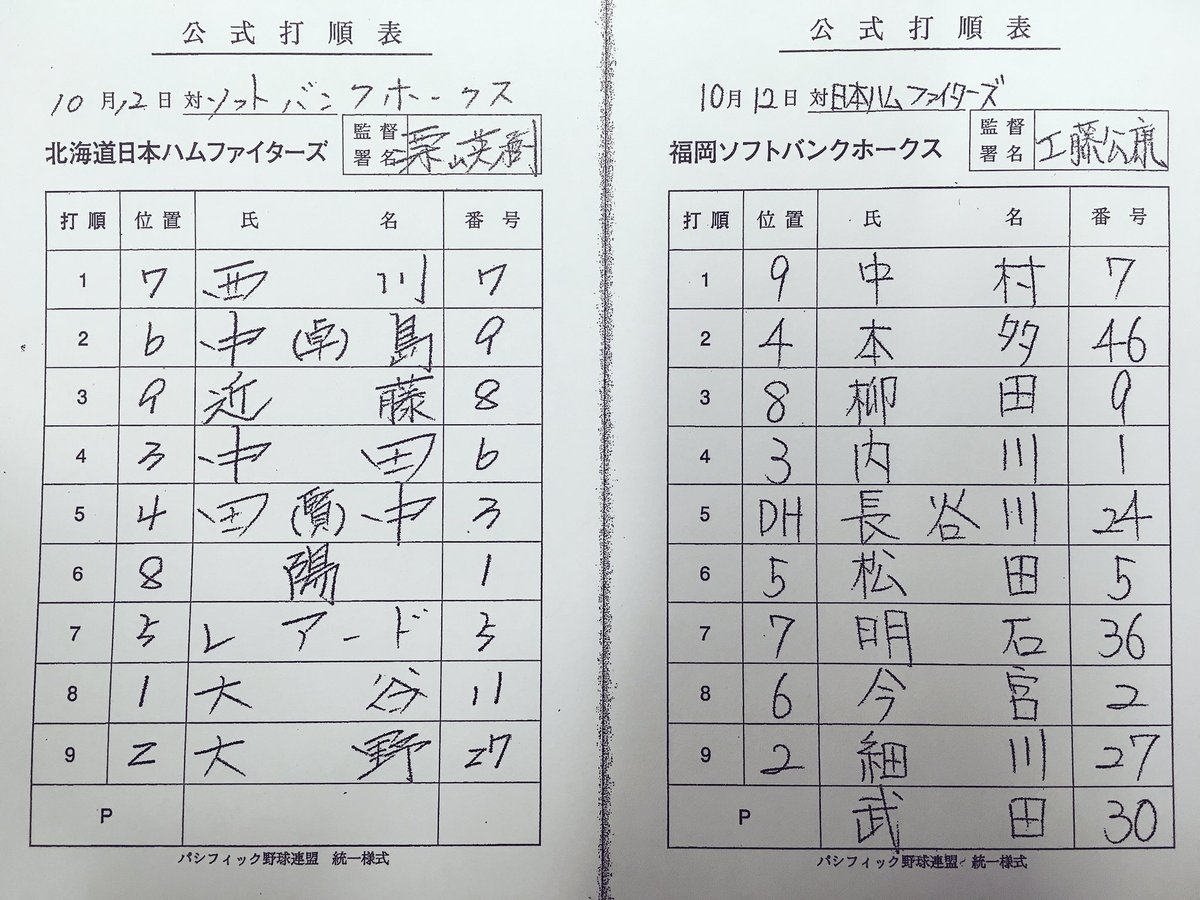 公式打順表
10月12日 対ソフトバンクホークス
北海道日本ハムファイターズ 監督署名 栗山英樹
打順 位置 氏名 番号
1 7 西川 7
2 6 中(卓)島 9
3 9 近藤 8
4 3 中田 6
5 4 田(賢)中 3
6 8 陽 1
7 5 レアード 5
8 1 大谷 11
9 2 大野 27
P
パシフィック野球連盟 統一様式
公式打順表
10月12日 対日本ハムファイターズ
福岡ソフトバンクホークス 監督署名 工藤公康
打順 位置 氏名 番号
1 9 中村 7
2 4 本多 46
3 8 柳田 9
4 3 内川 1
5 DH 長谷川 24
6 5 松田 5
7 7 明石 36
8 6 今宮 2
9 2 細川 27
P 武田 30
パシフィック野球連盟 統一様式